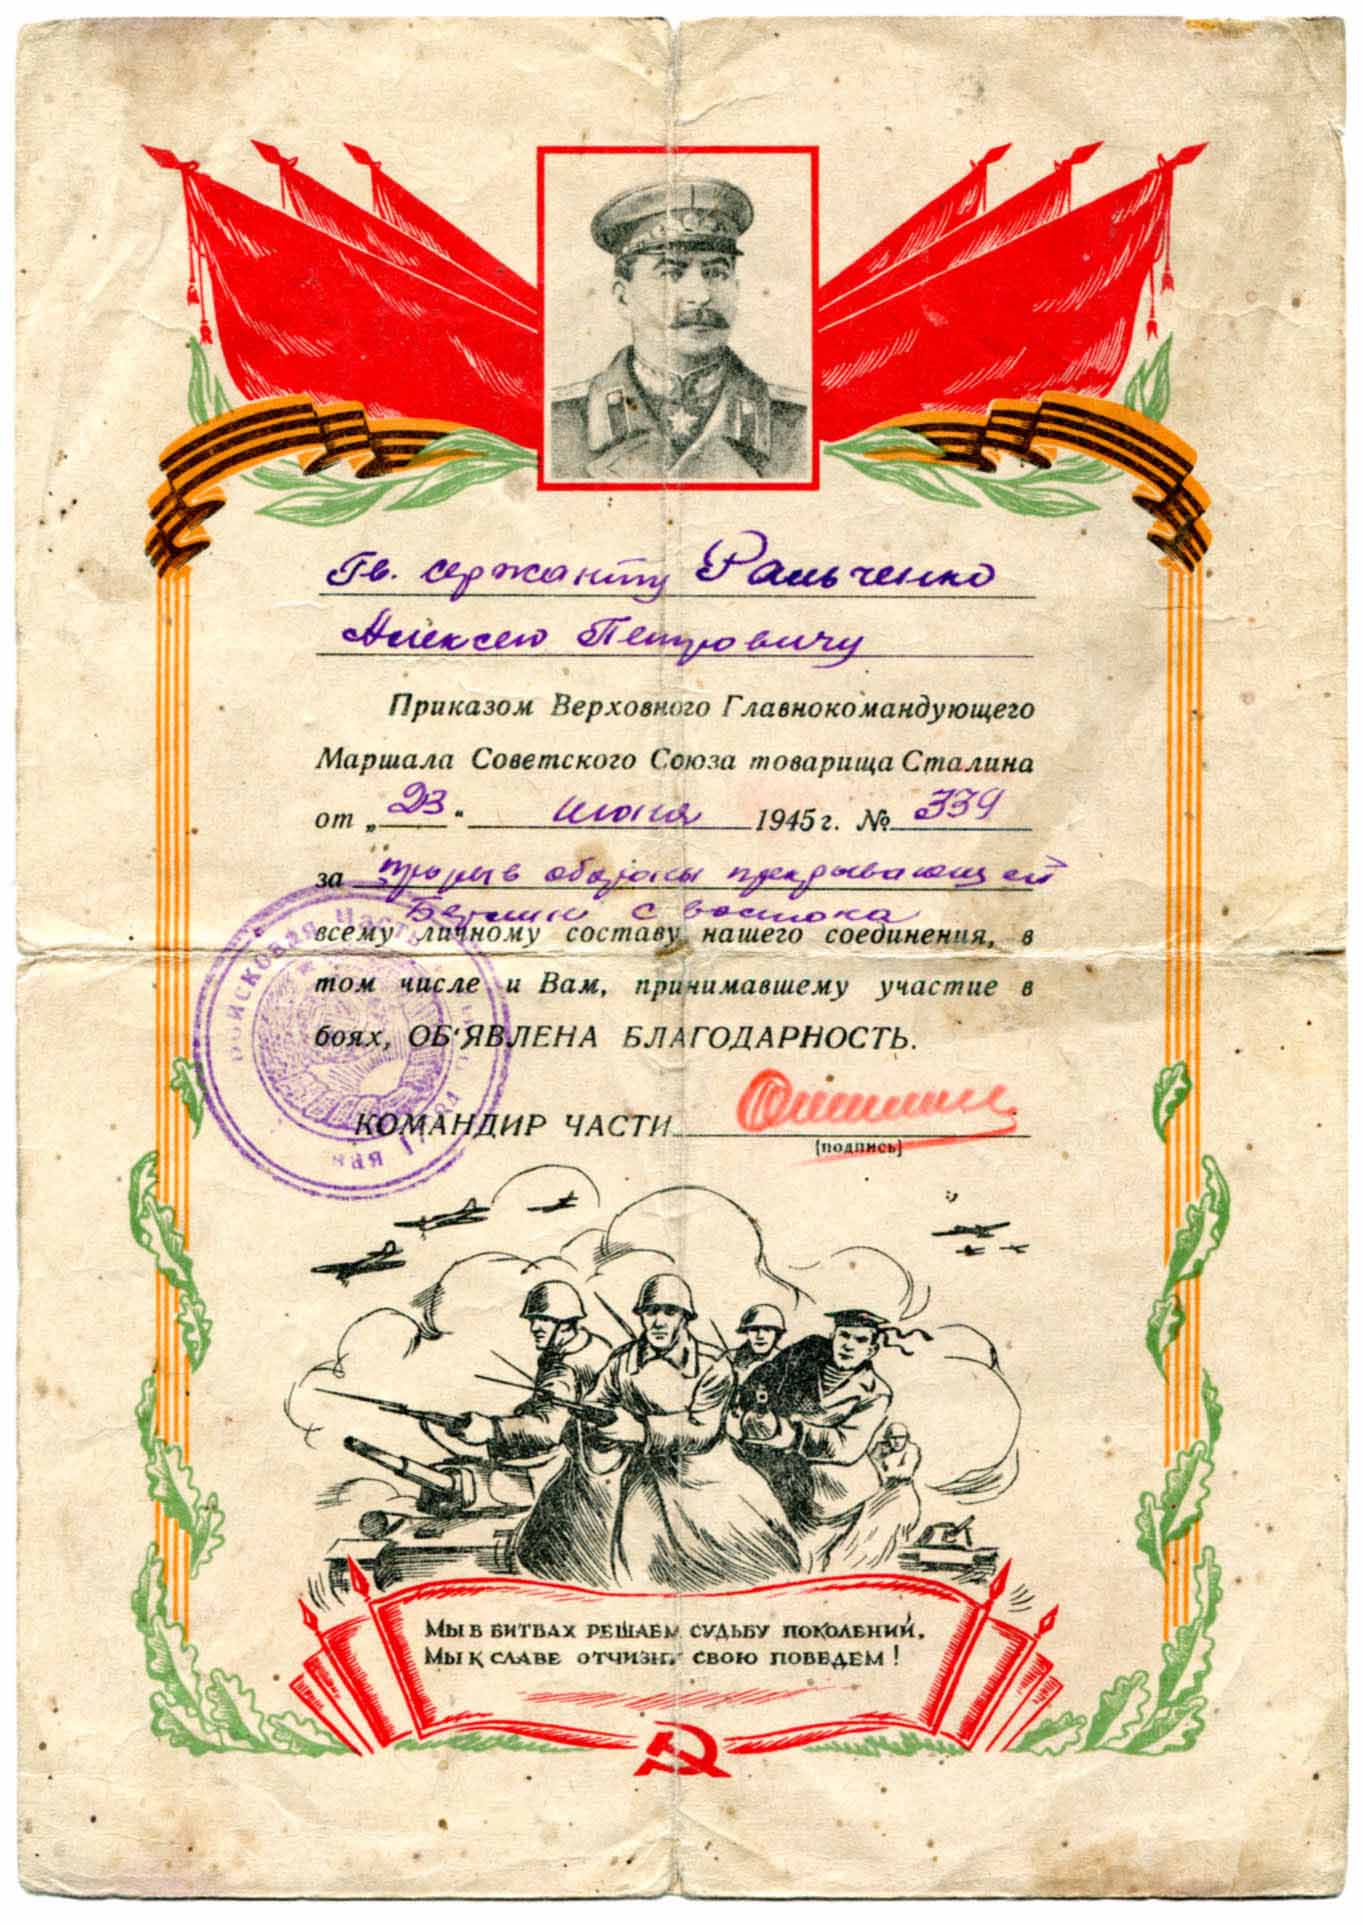 Гв. сержанту Фальченко
Алексею Петровичу
Приказом Верховного Главнокомандующего
Маршала Советского Союза товарища Сталина
от „23“ июня 1945 г. № 339
за прорыв обороны прекрывающей
Берлин с востока
всему личному составу нашего соединения, в
том числе и Вам, принимавшему участие в
боях, ОБ'ЯВЛЕНА БЛАГОДАРНОСТЬ.
ВОЙСКОВАЯ ЧАСТЬ
КОМАНДИР ЧАСТИ
(подпись)
МЫ В БИТВАХ РЕШАЕМ СУДЬБУ ПОКОЛЕНИЙ,
МЫ К СЛАВЕ ОТЧИЗНУ СВОЮ ПОВЕДЕМ!